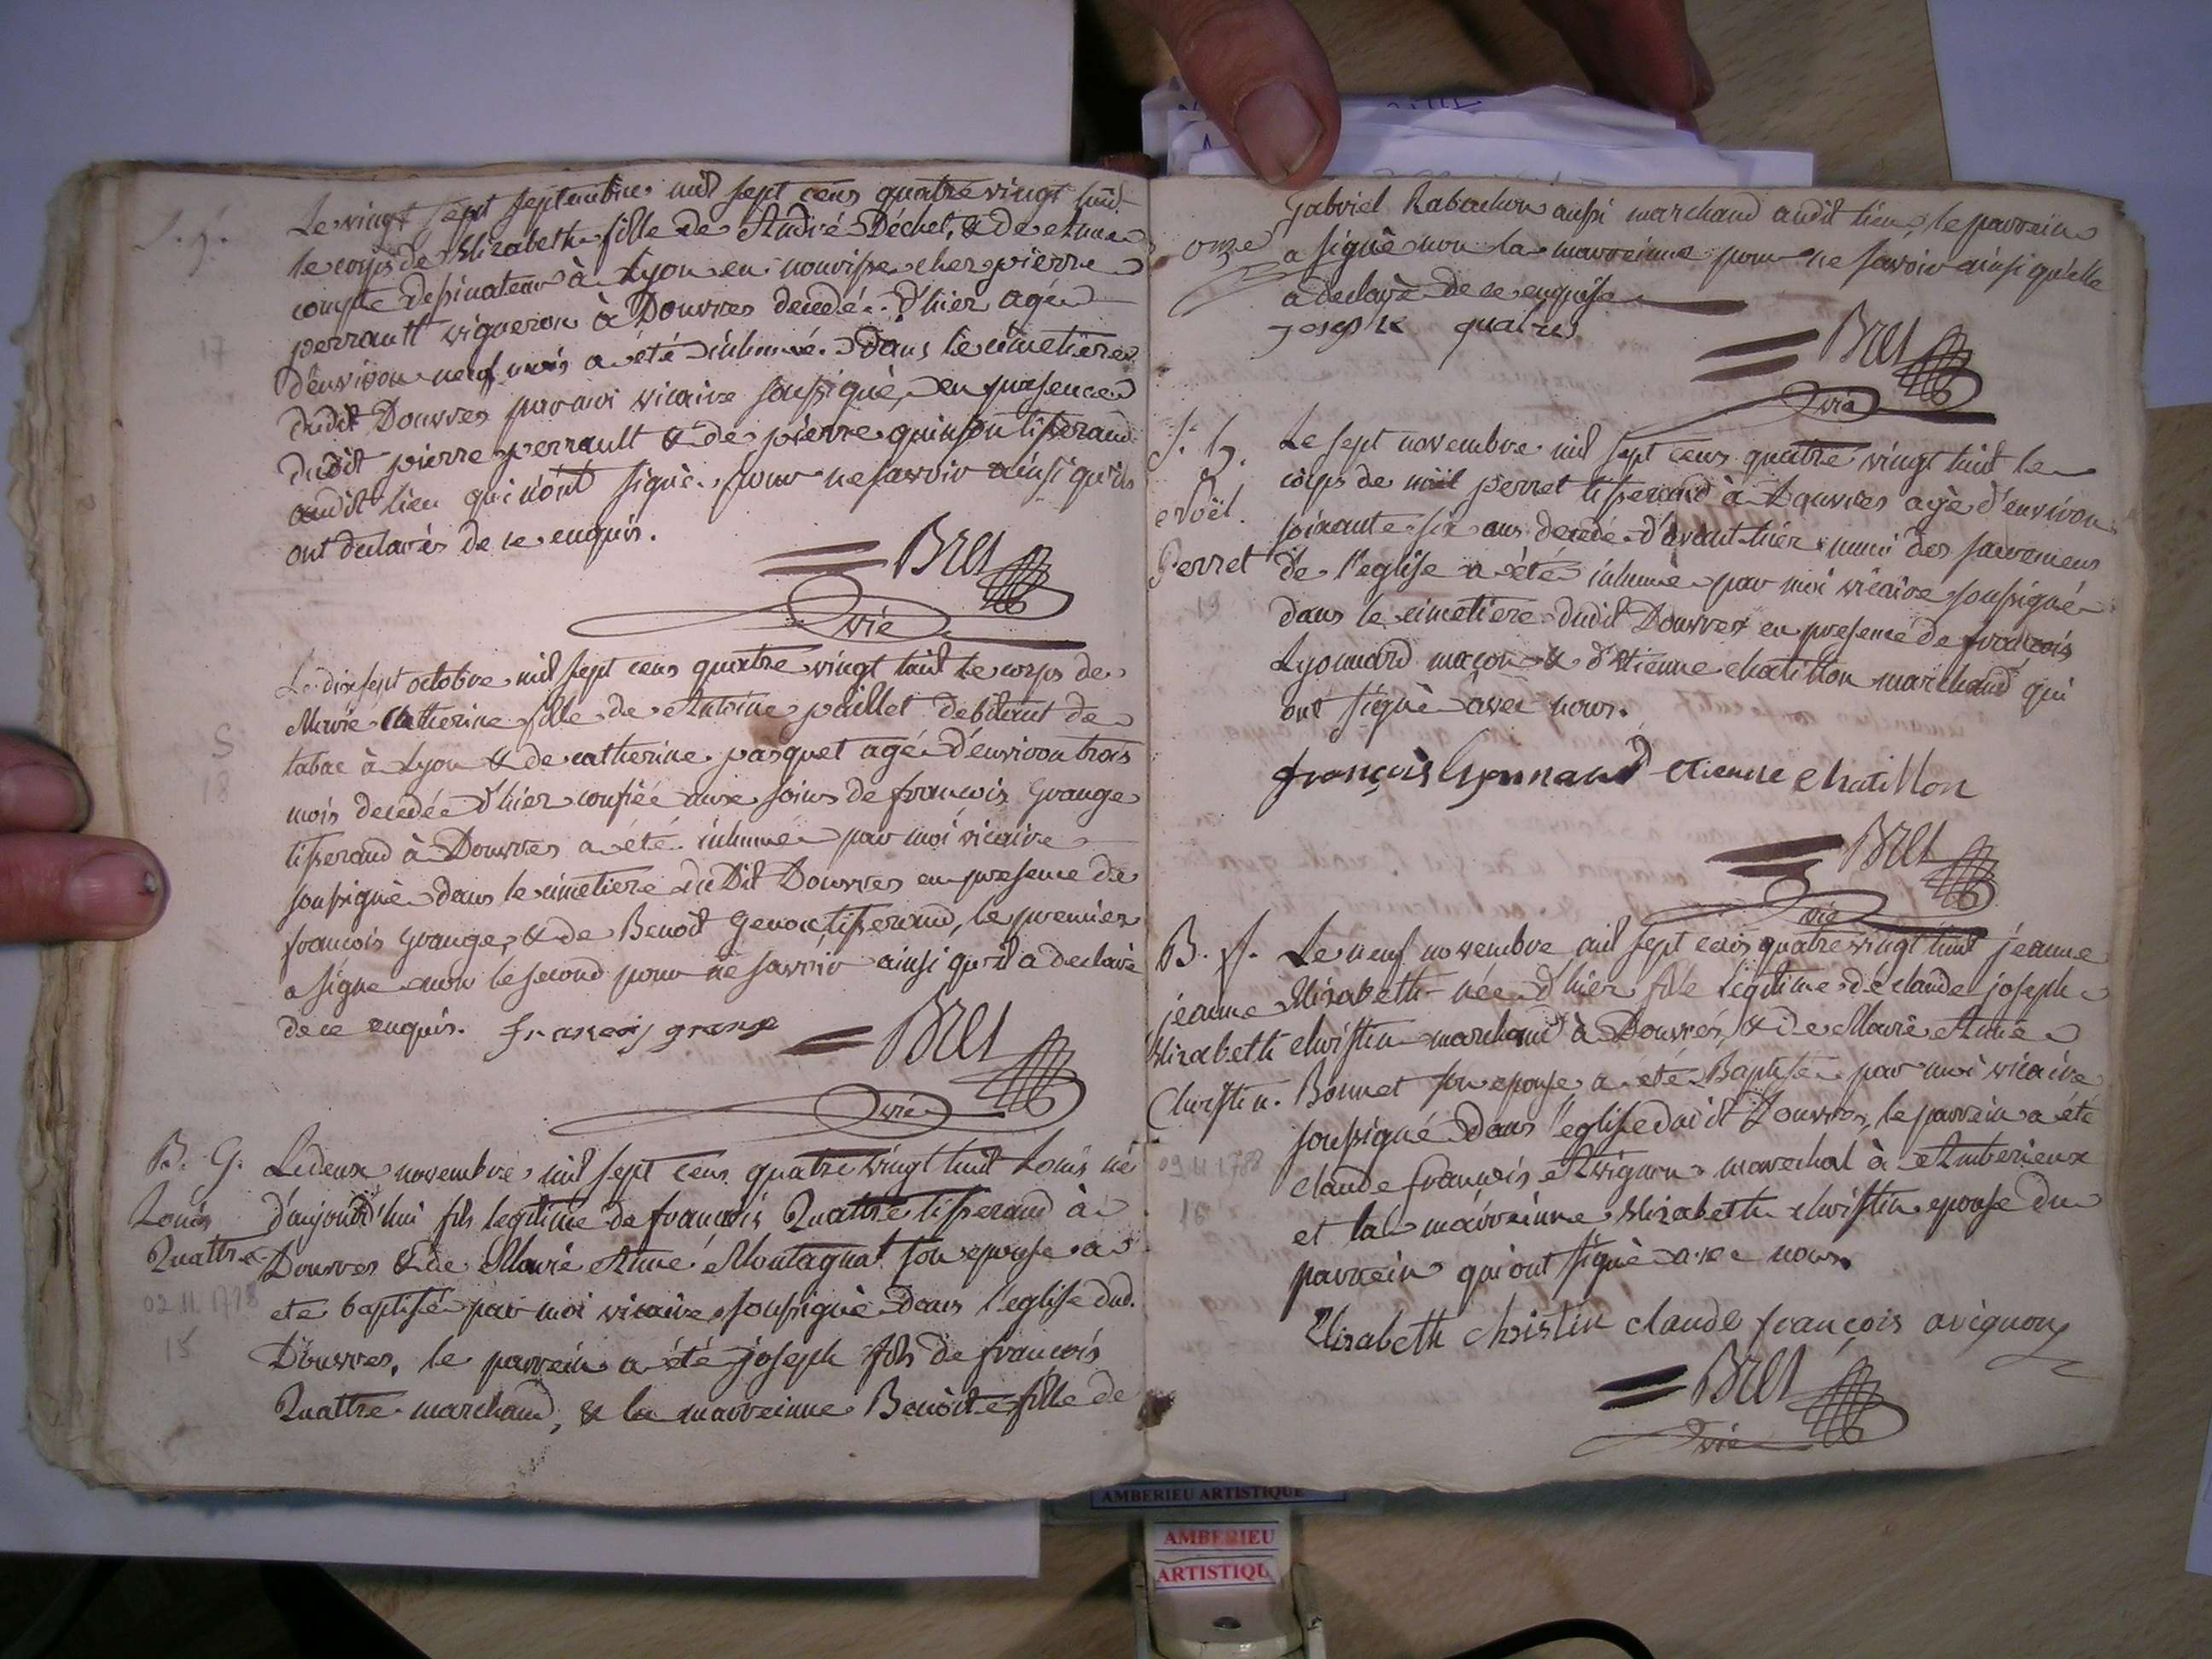 S. f.
Le vingt sept septembre mil sept cens quatre vingt huit
le corps de Elizabeth fille de André Déchet, & de Anne
compte dessinateur à Lyon en nourisse cher pierre
perrault vigneron à Douvres decedé d'hier agé
17
d'environ neuf mois a été inhumé dans le cimetiere
dudit Douvres par moi vicaire soussigné, en presence
dudit pierre perrault & de pierre quinson tisserand
audit lieu qui n'ont signé pour ne savoir ainsi qu'ils
ont declarés de ce enquis.
Bret
vic
Le dix sept octobre mil sept cens quatre vingt huit le corps de
Marie Catherine fille de Antoine paillet debitant de
S
tabac à Lyon & de catherine pasquet agé d'environ trois
18
mois decedée d'hier confiée aux soins de francois Grange
tisserand à Douvres a été inhumé par moi vicaire
soussigné dans le cimetiere dudit Douvres en presence de
francois Grange, & de Benoit Genou tisserand, le premier
a signé non le second pour ne savoir ainsi qu'il a declaré
de ce enquis. francois grange
Bret
vic
B. G.
Le deux novembre mil sept cens quatre vingt huit Louis né
Louis
d'aujourd'hui fils legitime de francois Quattre tisserand à
Quattre
Douvres & de Marie Anne Montagnat son epouse a
02.11.1788
eté baptisé par moi vicaire soussigné dans l'eglise dud.
15
Douvres, le parrein a été joseph fils de francois
Quattre marchand, & la marreinne Benoite fille de
Gabriel Rabachon aussi marchand audit lieu, le parrein
onze
a signé non la marreinne pour ne savoir ainsi qu'elle
a declaré de ce enquise
joseph quatre
Bret
vic
S. h.
Le sept novembre mil sept cens quatre vingt huit le
corps de noël perret tisserand à Douvres agé d'environ
Noël
soixante six ans decedé d'avant hier muni des sacremens
Perret
de l'eglise a été inhumé par moi vicaire soussigné
19
dans le cimetiere dudit Douvres en presence de francois
Lyonnard maçon & d'Etienne chatillon marchand qui
ont signé avec nous.
françois Lyonnard etienne chatillon
Bret
vic
B. f.
Le neuf novembre mil sept cens quatre vingt huit jeanne
jeanne
Elizabeth née d'hier fille legitime de claude joseph
Elizabeth
christin marchand à Douvres, & de Marie Anne
Christin.
Bonnet son epouse, a eté Baptisé par moi vicaire
soussigné dans l'eglise dudit Douvres, le parrein a été
09 11 1788
claude francois Avignon marechal à Amberieux
16
et la marreinne Elizabeth christin epouse du
parrein qui ont signé avec nous.
Elisabeth christin claude françois avignon
Bret
vic
AMBERIEU ARTISTIQUE
AMBERIEU
ARTISTIQU